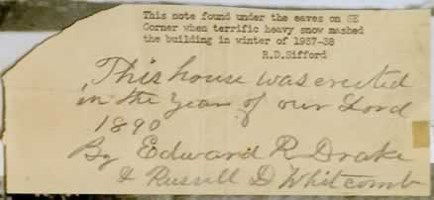 This note found under the eaves on SE
Corner when terrific heavy snow mashed
the building in winter of 1937-38
R.D.Sifford
This house was erected
in the year of our Lord
1890
By Edward R Drake
& Russell D Whitcomb